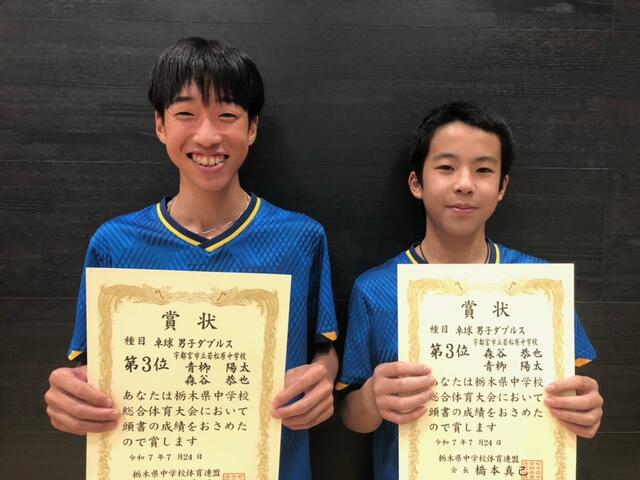 賞状
種目 卓球 男子ダブルス
宇都宮市立若松原中学校
第3位 青柳 陽太
森谷 恭也
あなたは栃木県中学校
総合体育大会において
頭書の成績をおさめた
ので賞します
令和7年7月24日
栃木県中学校体育連盟
賞状
種目 卓球 男子ダブルス
宇都宮市立若松原中学校
第3位 森谷 恭也
青柳 陽太
あなたは栃木県中学校
総合体育大会において
頭書の成績をおさめた
ので賞します
令和7年7月24日
栃木県中学校体育連盟
会長 橋本真己